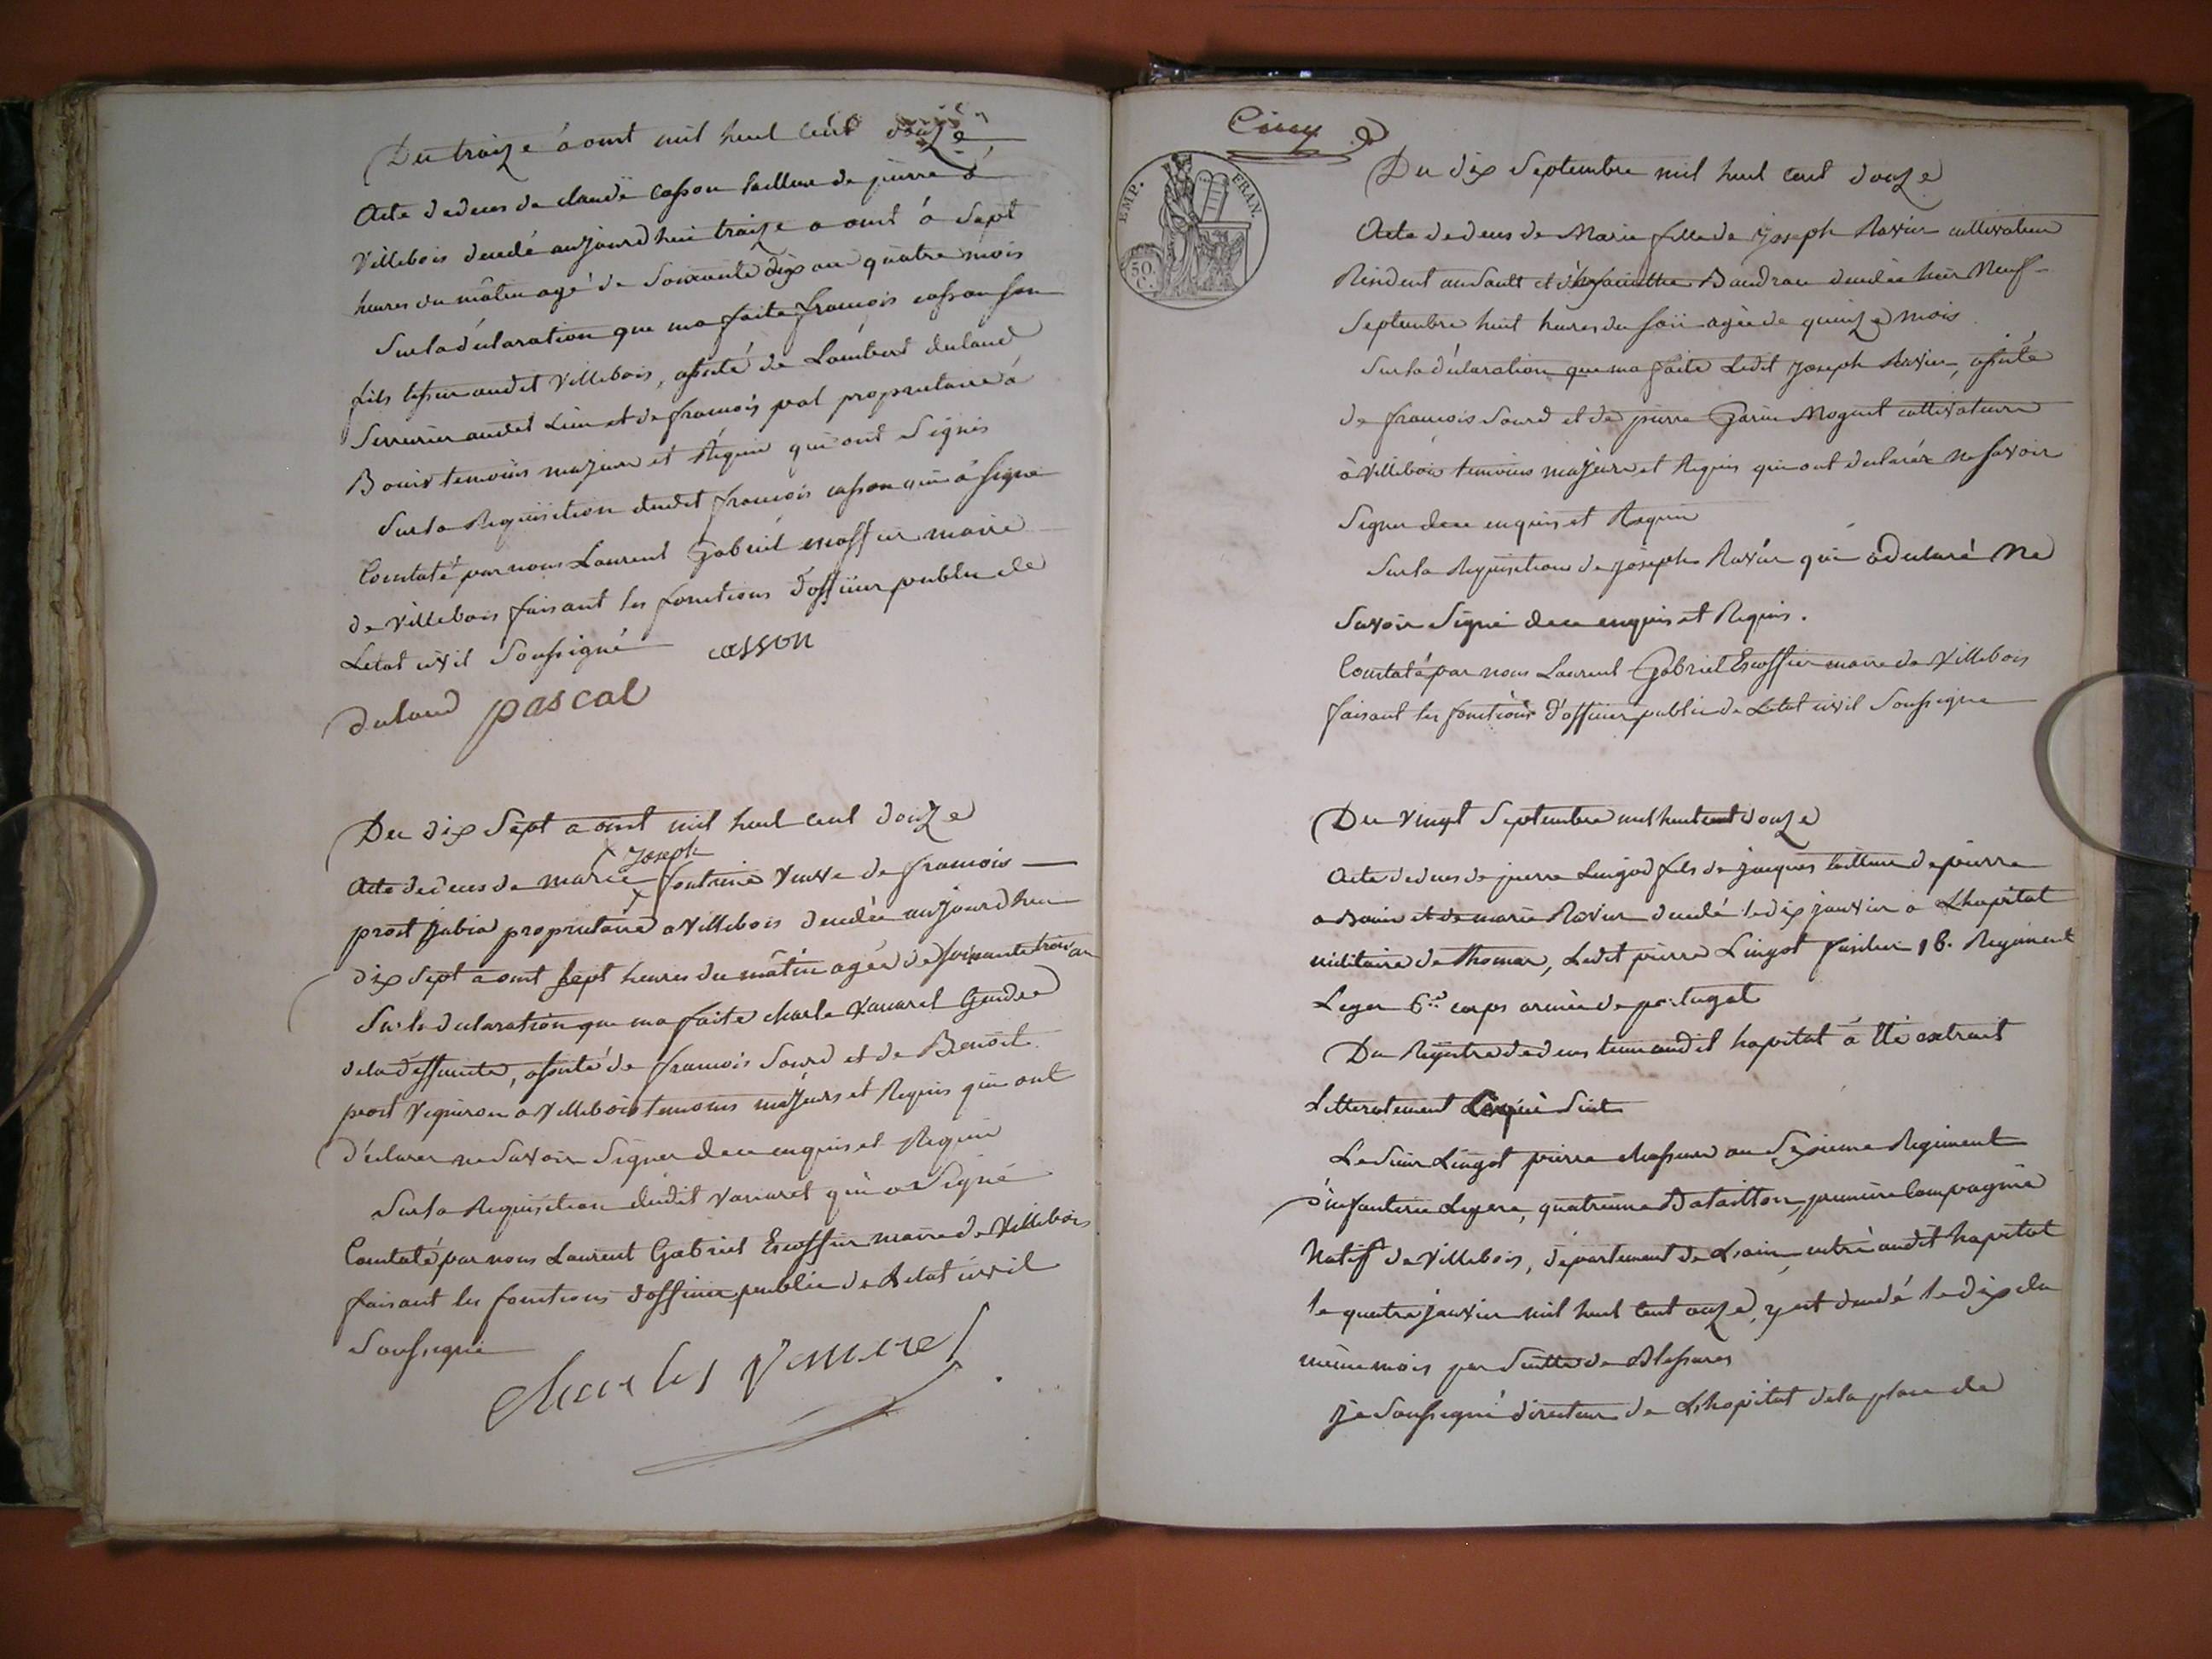 Du traize aout mil huit cent douze
Acte de deces de claude casson tailleur de pierre à
Villebois decedé aujourdhui traize aout à sept
heures du matin agé de soixante dix an quatre mois
Sur la déclaration que ma faite francois casson son
fils audit Villebois, assisté de Lambert duland
Serrurier audit Lieu et de francois pascal proprietaire à
Bouis temoins majeurs et Requis qui ont signés
Sur la Requisition dudit francois casson qui à signé
Constaté par nous Laurent Gabriel escoffier maire
de Villebois faisant les fonctions d'officier public de
Letat civil Soussigné casson
duland pascal
Du dix Sept aout mil huit cent douze
Joseph
Acte de deces de marie fontaine Veuve de francois
prost Jabia proprietaire a Villebois decedée aujourdhui
dix sept aout sept heures du matin agée de soixante trois an
Sur la declaration que ma faite charle Vanarel Gendre
de la deffunte, assisté de francois Sourd et de Benoît
prost Vigneron a Villebois temoins majeurs et Requis qui ont
déclarer ne Savoir Signer de ce enquis et Requis
Sur la Requisition dudit Vanarel qui a Signé
Constaté par nous Laurent Gabriel Escoffier maire de Villebois
faisant les fonctions d'officier public de Letat civil
Soussigné
Charles Vanarel
EMP. FRAN.
50 C.
Du dix Septembre mil huit cent douze
Acte de deces de Marie fille de Joseph Ravier cultivateur
Resident au Sault et d'hyacinthe Baudran decedée hier Neuf
Septembre huit heures du soir agée de quinze mois
Sur la déclaration que ma faite Ledit Joseph Ravier, assisté
de francois Sourd et de pierre Garin Moguet cultivateurs
à Villebois temoins majeurs et Requis qui ont declarér ne savoir
Signer de ce enquis et Requis
Sur la Requisition de Joseph Ravier qui à declaré Ne
Savoir Signé de ce enquis et Requis.
Constaté par nous Laurent Gabriel Escoffier maire de Villebois
faisant les fonctions d'officier public de Letat civil Soussigné
Du Vingt Septembre mil huit cent douze
Acte de deces de pierre Lingot fils de jacques tailleur de pierre
a Bouis et de marie Ravier decedé le dix janvier a Lhopital
militaire de Thomar, Ledit pierre Lingot fusilier 16. Regiment
Leger 6.e corps armée de portugal
Du Registre de deces tenu audit hopital à été extrait
Litteralement Ce qui Suit
Le Sieur Lingot pierre chasseur au Sezieme Regiment
d'infanterie Legere, quatrieme Bataillon, premiere Compagnie
Natif de Villebois, departement de Lain, entré audit hopital
le quatre janvier mil huit cent onze, y est decedé le dix du
même mois par Suitte de Blessures
Je Soussigné directeur de Lhopital de la place de